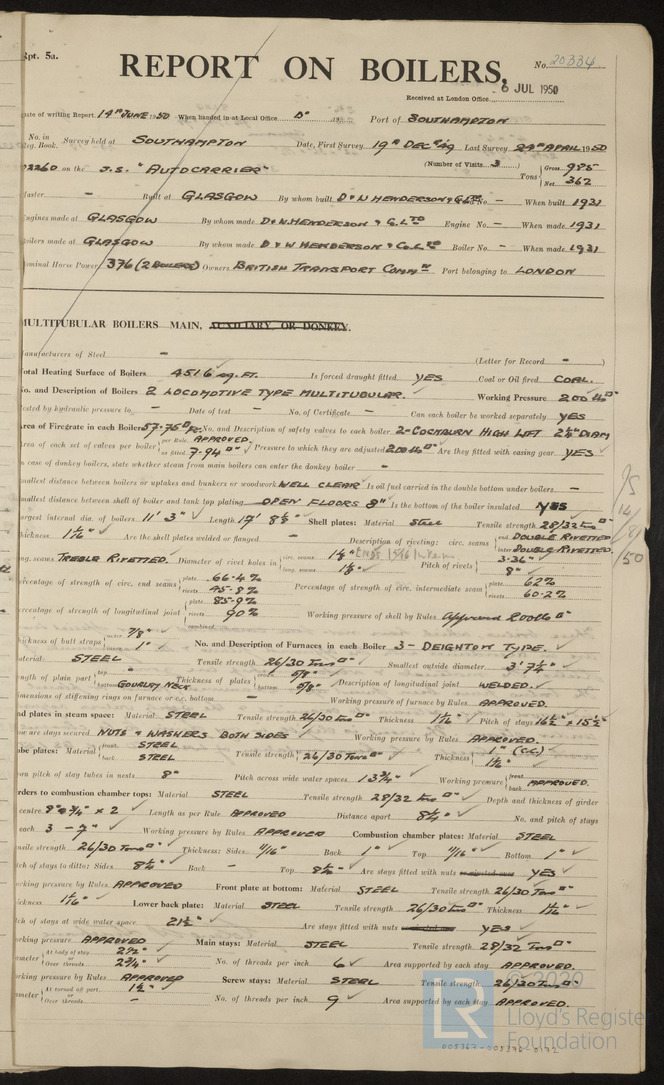 Rpt. 5a.
No. 20334
REPORT ON BOILERS,
Received at London Office 6 JUL 1950
Date of writing Report. 14th JUNE 1950 When handed in at Local Office 19 Port of SOUTHAMPTON
No. in Reg. Book. Survey held at SOUTHAMPTON Date, First Survey 19th DEC 49 Last Survey 29th APRIL 1950
(Number of Visits 3)
2260 on the S.S. "AUTOCARRIER" Tons { Gross 985
Net 362
Master - Built at GLASGOW By whom built D & W HENDERSON & Co LTD Yard No. - When built 1931
Engines made at GLASGOW By whom made D & W. HENDERSON & Co LTD Engine No. - When made 1931
Boilers made at GLASGOW By whom made D & W HENDERSON & Co. LTD Boiler No. - When made 1931
Nominal Horse Power 376 (2 BOILERS) Owners BRITISH TRANSPORT COMMn Port belonging to LONDON
MULTITUBULAR BOILERS MAIN, AUXILIARY, OR DONKEY.
Manufacturers of Steel - (Letter for Record - )
Total Heating Surface of Boilers 4516 sq. FT. Is forced draught fitted YES Coal or Oil fired COAL.
No. and Description of Boilers 2 LOCOMOTIVE TYPE MULTITUBULAR. Working Pressure 200 lb□"
Tested by hydraulic pressure to - Date of test - No. of Certificate - Can each boiler be worked separately YES
Area of Firegrate in each Boiler 57.75 □ Ft. No. and Description of safety valves to each boiler 2-COCKBURN HIGH LIFT 2½" DIAM
Area of each set of valves per boiler { per Rule APPROVED.
as fitted 7.94 □" Pressure to which they are adjusted 200 lb□" Are they fitted with easing gear YES
In case of donkey boilers, state whether steam from main boilers can enter the donkey boiler -
Smallest distance between boilers or uptakes and bunkers or woodwork WELL CLEAR Is oil fuel carried in the double bottom under boilers -
Smallest distance between shell of boiler and tank top plating OPEN FLOORS 8" Is the bottom of the boiler insulated YES
Largest internal dia. of boilers 11' 3" Length 17' 8½" Shell plates: Material STEEL Tensile strength 28/32 Tons□"
Thickness 1 1/16" Are the shell plates welded or flanged - Description of riveting: circ. seams { end DOUBLE RIVETTED
inter. DOUBLE RIVETTED.
long. seams TREBLE RIVETTED. Diameter of rivet holes in { circ. seams 1⅛"
long. seams 1⅛" Pitch of rivets { 3.36"
8"
Percentage of strength of circ. end seams { plate 66.4%
rivets 45.8% Percentage of strength of circ. intermediate seams { plate 62%
rivets 60.2%
Percentage of strength of longitudinal joint { plate 85.9%
rivets 90%
combined Working pressure of shell by Rules Approved 200lb□"
Thickness of butt straps { outer 7/8"
inner 1" No. and Description of Furnaces in each Boiler 3 - DEIGHTON TYPE.
Material STEEL Tensile strength 26/30 Tons□" Smallest outside diameter 3' 7¼"
Length of plain part { top -
bottom GOURLAY NECK Thickness of plates { crown 5/8"
bottom 5/8" Description of longitudinal joint WELDED.
Dimensions of stiffening rings on furnace or c.c. bottom - Working pressure of furnace by Rules APPROVED.
End plates in steam space: Material STEEL Tensile strength 26/30 Tons□" Thickness 1 1/16" Pitch of stays 16½" x 15½"
How are stays secured NUTS & WASHERS BOTH SIDES Working pressure by Rules APPROVED.
Tube plates: Material { front STEEL
back STEEL Tensile strength { 26/30 Tons□" Thickness { 1" (C.C.)
Mean pitch of stay tubes in nests 8" Pitch across wide water spaces 13¾" Working pressure { front
back APPROVED.
Girders to combustion chamber tops: Material STEEL Tensile strength 28/32 Tons□" Depth and thickness of girder
at centre 8" x ¾" x 2 Length as per Rule APPROVED Distance apart 8¼" No. and pitch of stays
in each 3 - 7" Working pressure by Rules APPROVED Combustion chamber plates: Material STEEL
Tensile strength 26/30 Tons□" Thickness: Sides 11/16" Back 1" Top 11/16" Bottom 1"
Pitch of stays to ditto: Sides 8¼" Back - Top 8¼" Are stays fitted with nuts or riveted over YES
Working pressure by Rules APPROVED Front plate at bottom: Material STEEL Tensile strength 26/30 Tons□"
Thickness 1 1/16" Lower back plate: Material STEEL Tensile strength 26/30 Tons□" Thickness 1 1/16"
Pitch of stays at wide water space 21½" Are stays fitted with nuts YES
Working pressure APPROVED Main stays: Material STEEL Tensile strength 28/32 Tons□"
Diameter { At body of stay 2½"
or
Over threads 2¾" No. of threads per inch 6 Area supported by each stay APPROVED.
Working pressure by Rules APPROVED Screw stays: Material STEEL Tensile strength 26/30 Tons□"
Diameter { At turned off part 1½"
or
Over threads - No. of threads per inch 9 Area supported by each stay APPROVED.
© 2020
LR
Lloyd's Register
Foundation
005367-005396-0172